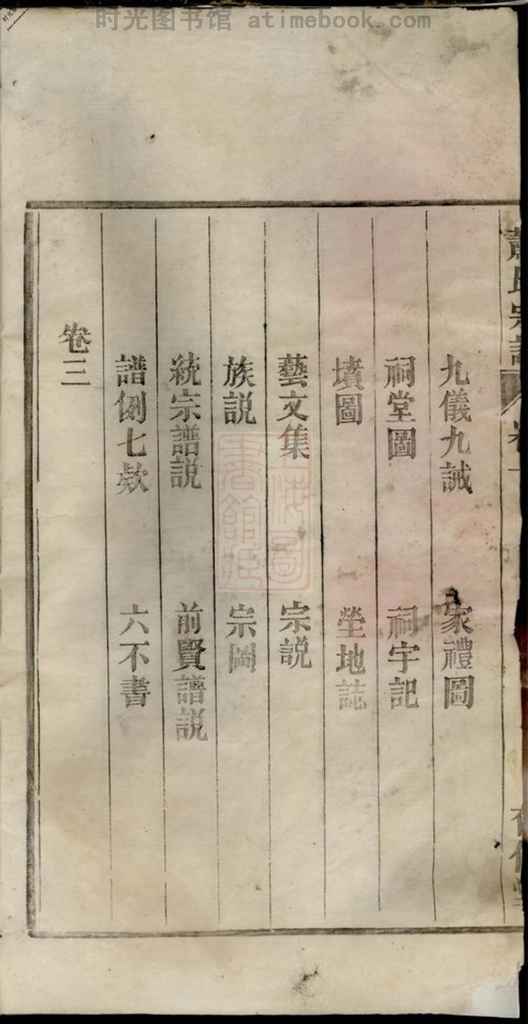 时光图书馆 atimebook.com
氏宗譜 卷一
九儀九誡 家禮圖
祠堂圖 祠宇記
墳圖 塋地誌
藝文集 宗説
族説 宗圖
統宗譜説 前賢譜説
譜例七欵 六不書
卷三